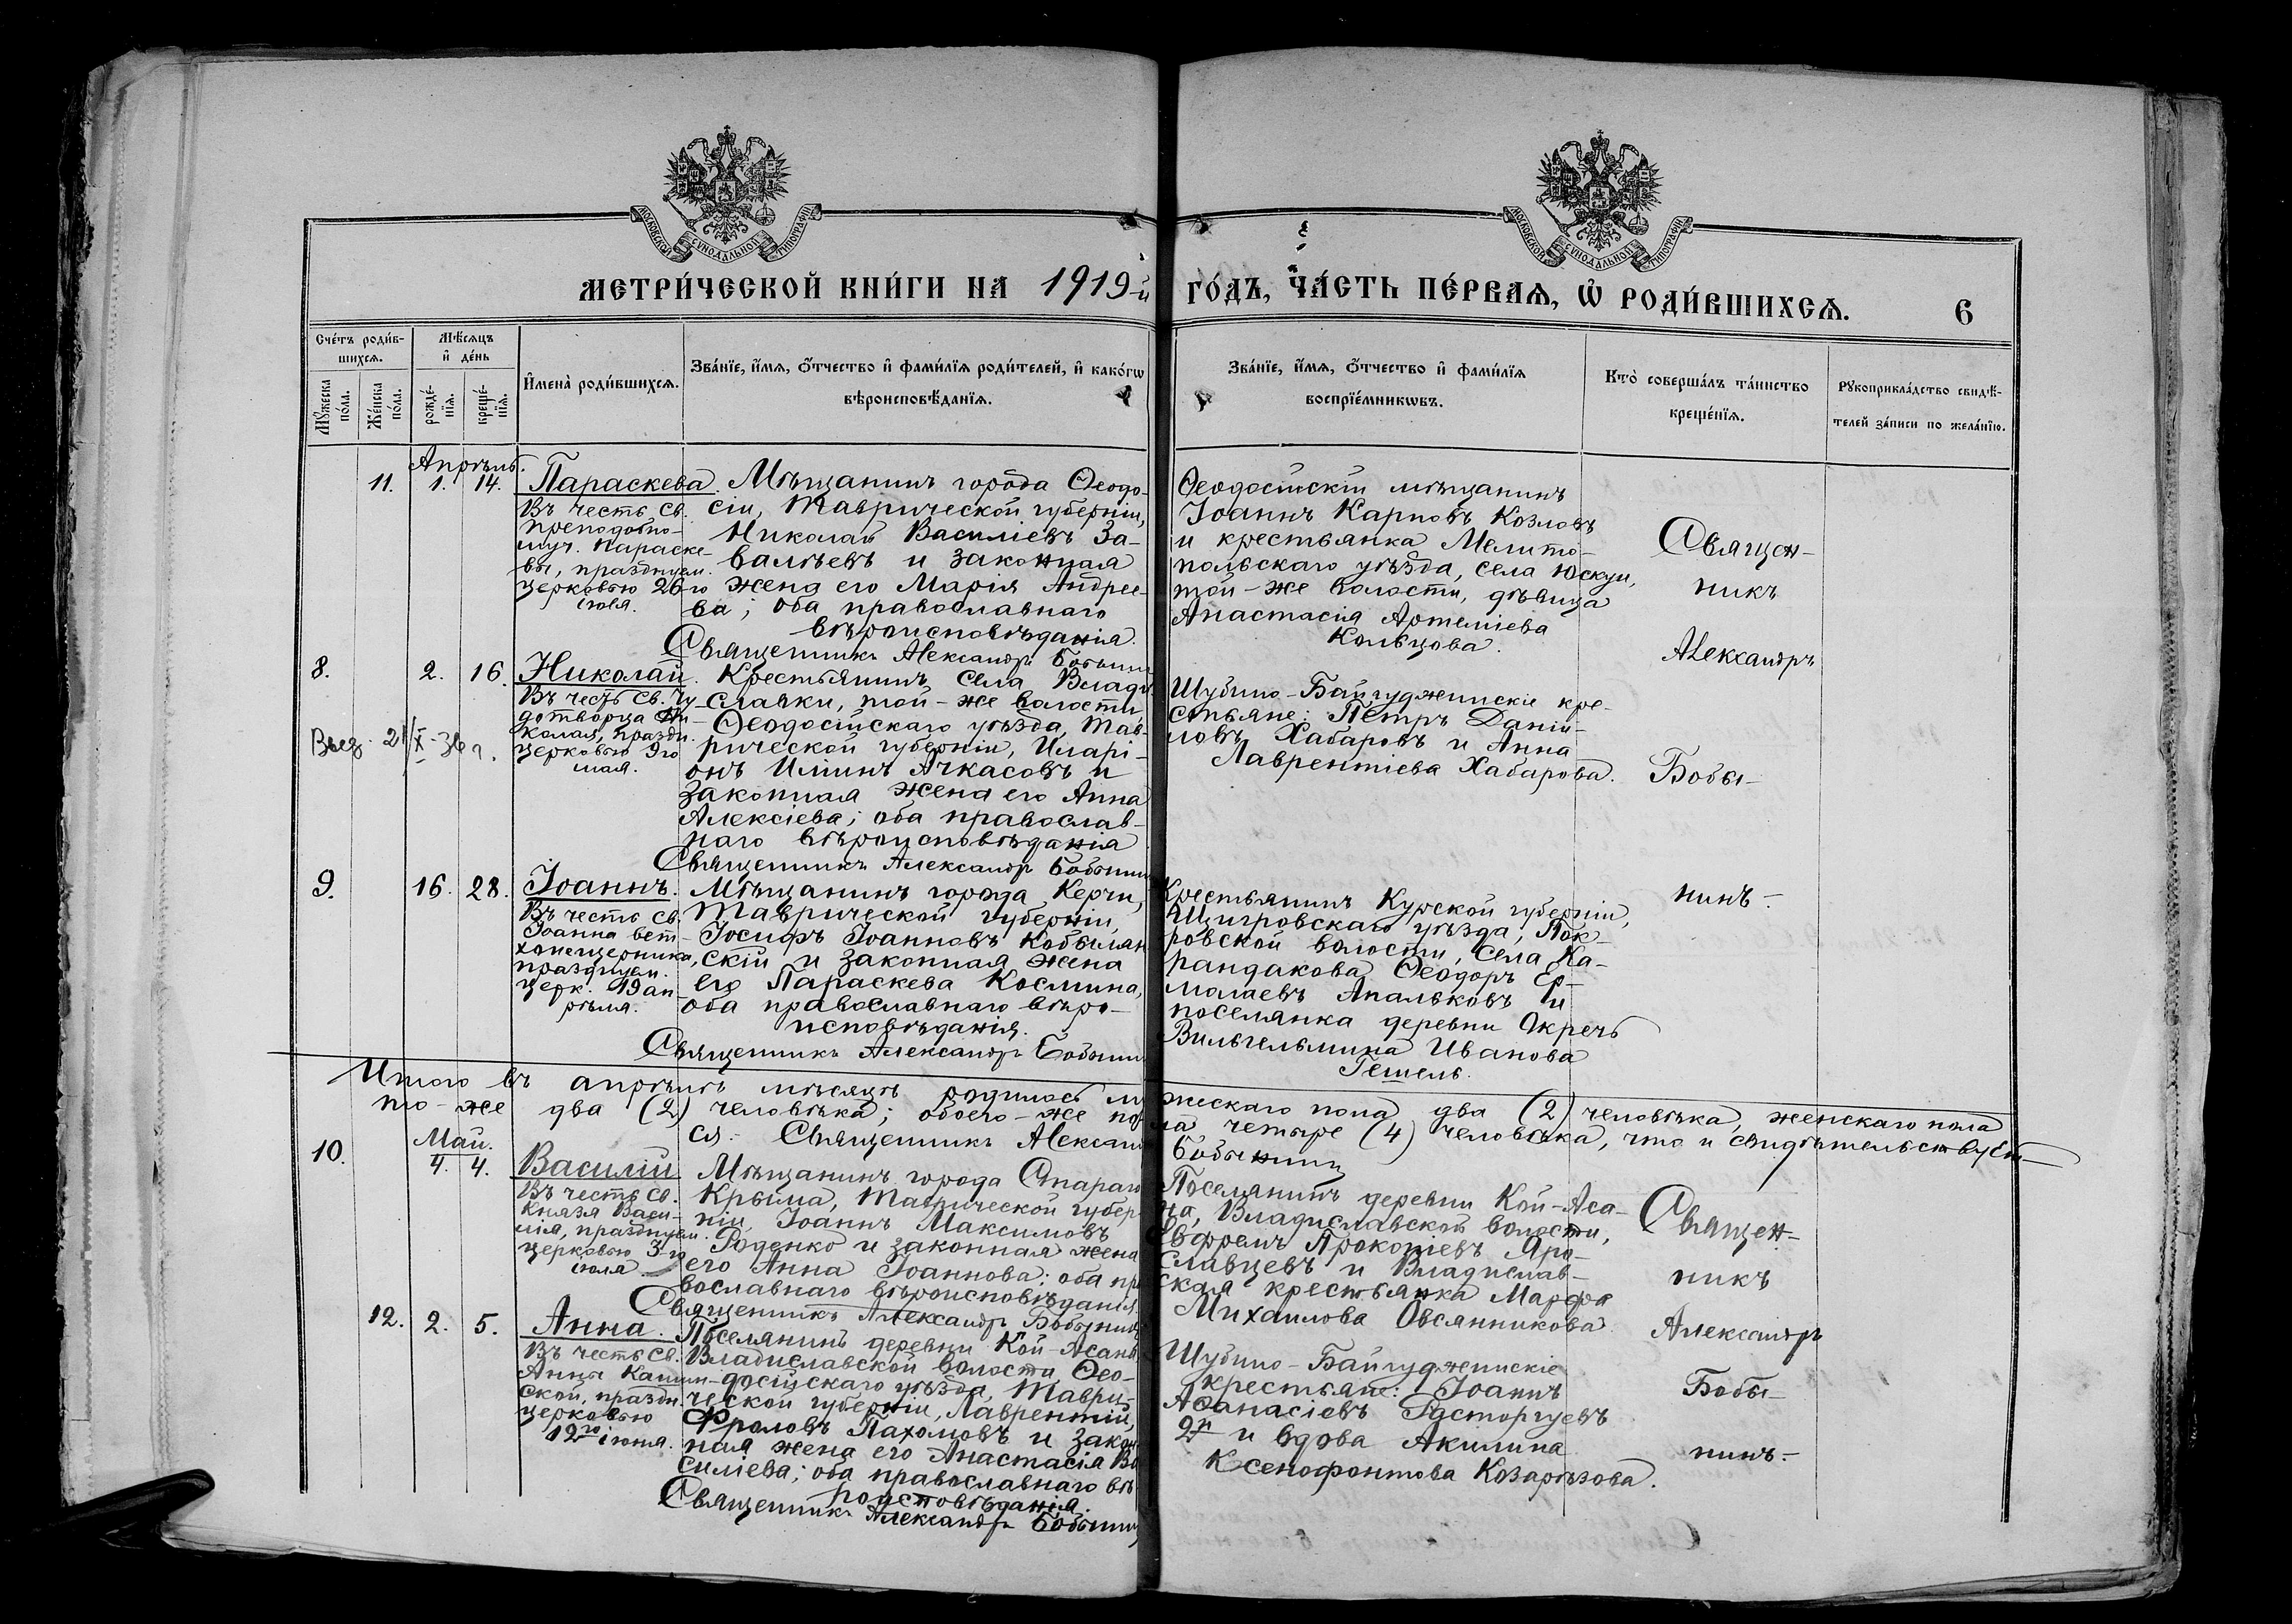 МОСКОВСКОЙ СѴНОДАЛЬНОЙ ТИПОГРАФІИ
МОСКОВСКОЙ СѴНОДАЛЬНОЙ ТИПОГРАФІИ
МЕТРИ́ЧЕСКОЙ КНИ́ГИ НА 1919-й
ГО́ДЪ, ЧА́СТЬ ПЕ́РВАѦ, Ѡ҆ РОДИ́ВШИХСѦ.
6
Сче́тъ роди́в-
шихсѧ.
Мѣ́сѧцъ
и҆ де́нь
Мꙋ́жеска по́ла.
Же́нска по́ла.
рожде́-
нїѧ.
креще́-
нїѧ.
И҆мена̀ роди́вшихсѧ.
Зва́нїе, и҆́мѧ, ѻ҆́тчество и҆ фами́лїѧ роди́телей, и҆ како́гѡ
вѣроисповѣ́данїѧ.
Зва́нїе, и҆́мѧ, ѻ҆́тчество и҆ фами́лїѧ
воспрїе́мникѡвъ.
Кто̀ соверша́лъ та́инство
креще́нїѧ.
Рꙋкоприкла́дство свидѣ́-
телей за́писи по жела́нїю.
Апрѣль.
11. 1. 14.
Параскева.
Въ честь Св.
преподобно-
муч. Параске-
вы, празднуем.
церковью 26-го
іюля.
Мѣщанинъ города Ѳеодо-
сіи, Таврической губерніи,
Николай Василіевъ За-
валѣевъ и законная
жена его Марія Андрее-
ва; оба православнаго
вѣроисповѣданія.
Священникъ Александръ Бобынин
Ѳеодосійскій мѣщанинъ
Іоаннъ Карповъ Козловъ
и крестьянка Мелито-
польскаго уѣзда, села Юскуи,
той-же волости, дѣвица
Анастасія Артеміева
Кольцова.
Священ-
никъ
Александръ
Бобы-
нинъ.-
8. 2. 16.
Николай.
Въ честь Св. Чу-
дотворца Ни-
колая, праздн.
церковью 9го
мая.
21/X-36 г.
Крестьянинъ села Влади
славки, той-же волости
Ѳеодосійскаго уѣзда, Тав-
рической губерніи, Иларі-
онъ Илiинъ Ачкасовъ и
законная жена его Анна
Алексіева; оба православ-
наго вѣроисповѣданія
Священникъ Александръ Бобынин
Шубино-Байгуджинскіе кре-
стьяне: Петръ Даніи-
ловъ Хабаровъ и Анна
Лаврентіева Хабарова.
9. 16. 28.
Іоаннъ.
Въ честь Св.
Іоанна вет-
хопещерника,
празднуем.
церк. 19 ап-
рѣля.
Мѣщанинъ города Керчи,
Таврической губерніи,
Іосифъ Іоанновъ Кобылян
скій и законная жена
его Параскева Космина,
оба православнаго вѣро-
исповѣданія.
Священникъ Александръ Бобынин
Крестьянинъ Курской губерніи,
Щигровскаго уѣзда, Пок-
ровской волости, села Ка-
рандакова Ѳеодоръ Ер-
молаевъ Апальковъ и
поселянка деревни Окречь
Вильгельмина Иванова
Гешель.
Итого въ апрѣлѣ мѣсяцѣ родилось му
жескаго пола два (2) человѣка, женскаго пола
то-же два (2) человѣка; обоего-же по
ла четыре (4) человѣка, что и свидѣтельствует
ся. Священникъ Александ
Бобынинъ
Май.
10. 4. 4.
Василій
Въ честь Св.
Князя Васи-
лія, празднуем.
церковью 3-го
іюля.
Мѣщанинъ города Стараго
Крыма, Таврической губер
ніи, Іоаннъ Максимовъ
Роденко и законная жена
его Анна Іоаннова; оба пр
вославнаго вѣроисповѣданія.
Священникъ Александръ Бобынинъ
Поселянинъ деревни Кой-Аса-
на, Владиславской волости,
Ефремъ Прокопіевъ Яро-
славцевъ и Владислав-
ская крестьянка Марѳа
Михаилова Овсянникова.
Священ-
никъ
Александръ
Бобы-
нинъ.-
12. 2. 5.
Анна.
Въ честь Св.
Анны Кашин-
ской, праздн.
церковью
12го іюня.
Поселянинъ деревни Кой-Асань
Владиславской волости, Ѳео-
досійскаго уѣзда, Таври-
ческой губерніи, Лаврентій
Фроловъ Пахомовъ и закон
ная жена его Анастасія Ва
силіева; оба православнаго вѣ
роисповѣданія.
Священникъ Александръ Бобынин
Шубино-Байгуджинскіе
крестьяне: Іоаннъ
Аѳанасіевъ Расторгуевъ
2й и вдова Акилина
Ксенофонтова Козарѣзова.